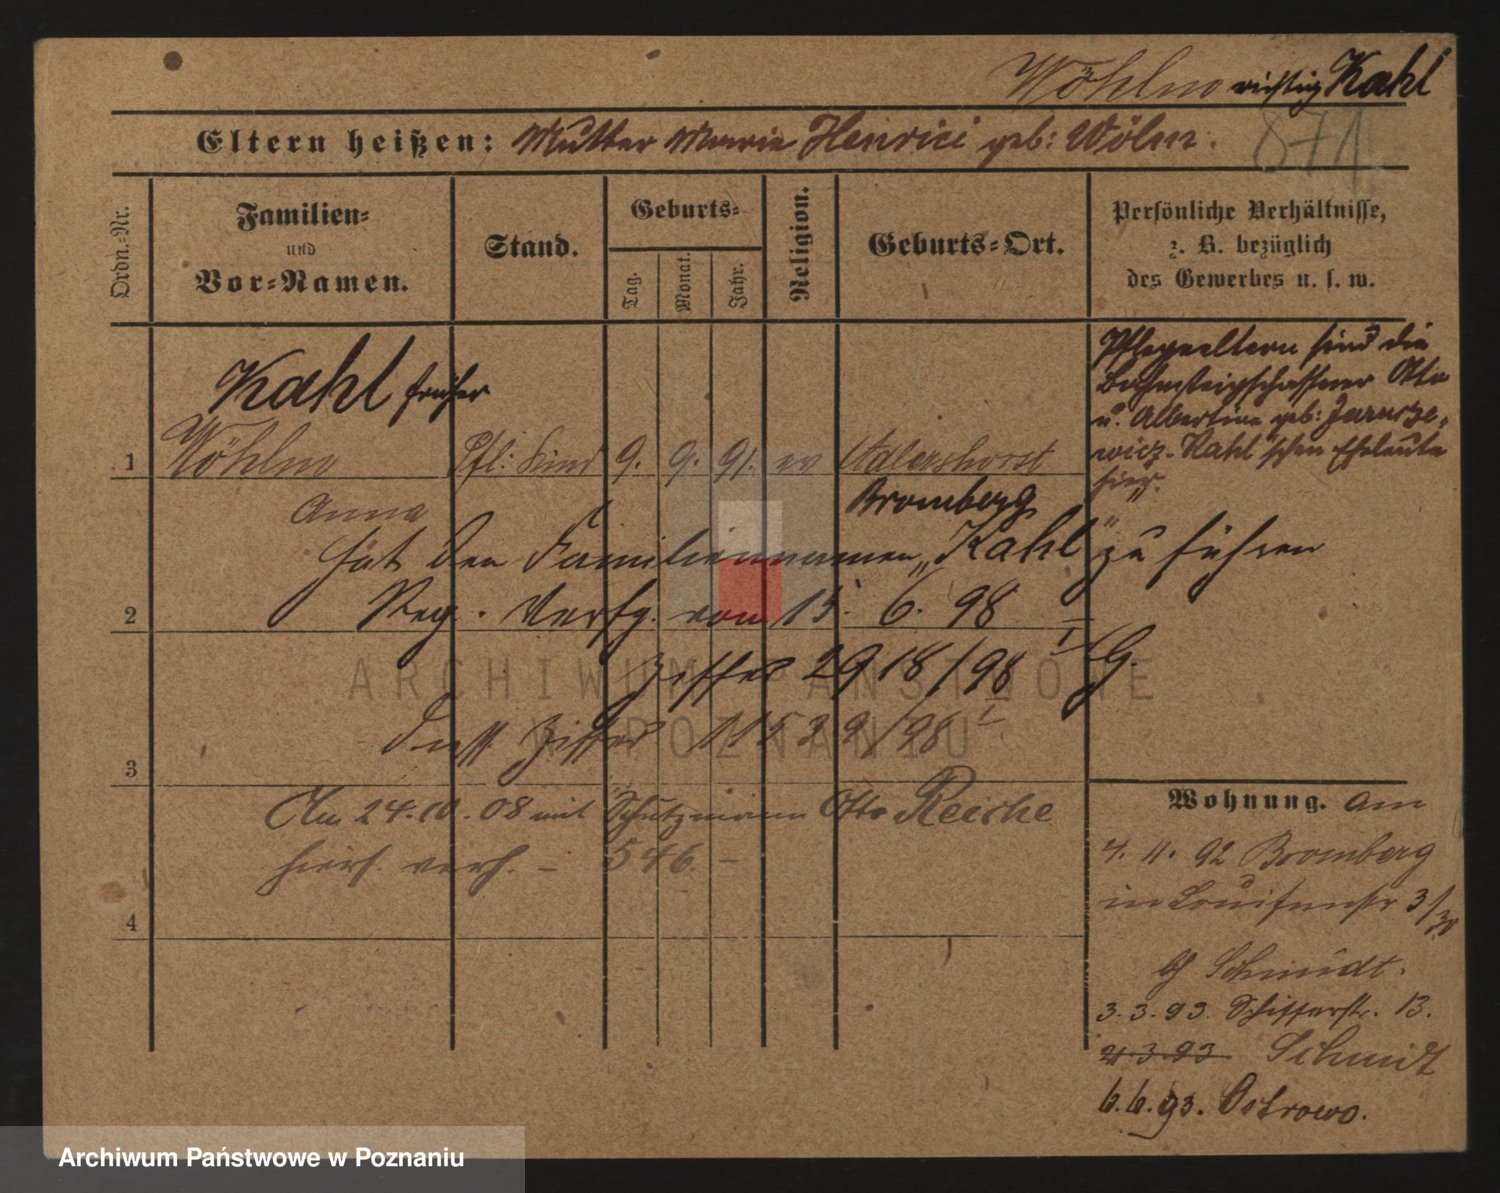 Wöhlno richtig Kahl
Eltern heißen: Mutter Marie Henrici geb: Wölm.
871
Ordn.-Nr.
Familien-
und
Vor-Namen.
Stand.
Geburts-
Tag.
Monat.
Jahr.
Religion.
Geburts-Ort.
Persönliche Verhältnisse,
z. B. bezüglich
des Gewerbes u. s. w.
Kahl früher
1 Wöhlno Pfl: Kind 9. 9. 91. ev Adlershorst
Anna Bromberg
hat den Familiennamen „Kahl" zu führen
2 Reg. Verfg. vom 15. 6. 98
Ziffer 2918/98 G.
3 Ziffer
Am 24.10.08 mit Schutzmann Otto Reiche
hiers. verh. – 546. –
4
Pflegeeltern sind die
Bahnsteigschaffner Otto
u. Albertine geb: Jarusze-
wicz-Kahl'schen Eheleute
hier.
Wohnung. am
4. 11. 92 Bromberg
in Louisenstr 3/
Schmidt.
3. 3. 93. Schifferstr. 13.
4.3.93 Schmidt
6.6.93. Ostrowo.
ARCHIWUM PAŃSTWOWE
W POZNANIU
Archiwum Państwowe w Poznaniu